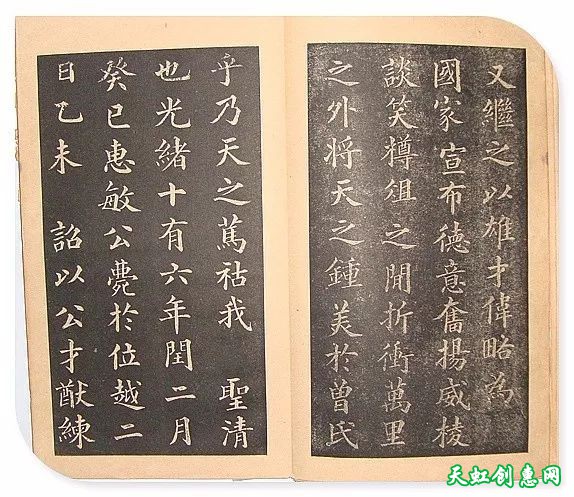 又繼之以雄才偉略為
國家宣布德意奮揚威棱
談笑樽俎之間折衝萬里
之外將天之鍾美於曾氏
乎乃天之篤祜我 聖清
也光緒十有六年閏二月
癸巳惠敏公薨於位越二
日乙未 詔以公才猷練
天虹创意网